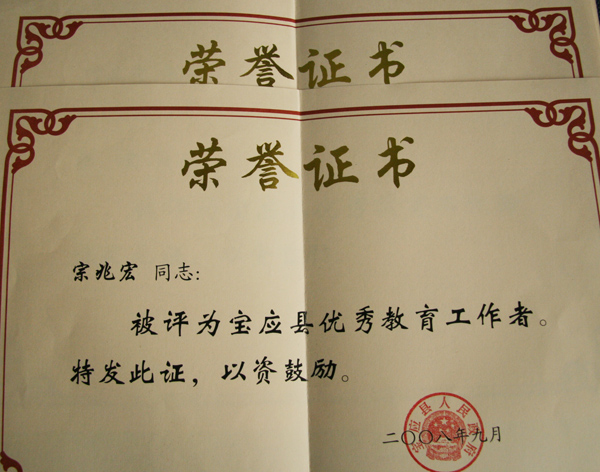 荣誉证书
荣誉证书
宗兆宏 同志:
被评为宝应县优秀教育工作者。
特发此证，以资鼓励。
宝应县人民政府
二〇〇八年九月